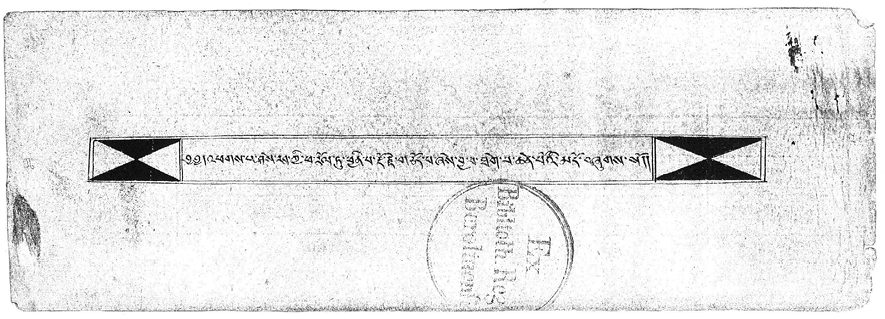 ༄༅།འཕགས་པ་ཤེས་རབ་ཀྱི་ཕ་རོལ་ཏུ་ཕྱིན་པ་རྡོ་རྗེ་གཅོད་པ་ཞེས་བྱ་བ་ཐེག་པ་ཆེན་པོའི་མདོ་བཞུགས་སོ།།
Ex
Biblioth. Reg
Berolinens